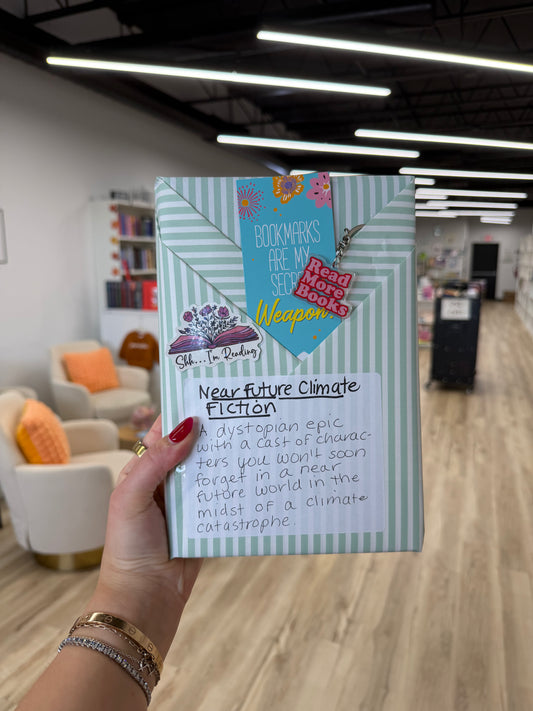 BOOKMARKS
ARE MY
SECRET
Weapon!
Read
More
Books
Shh... I'm Reading
Near Future Climate
Fiction
A dystopian epic
with a cast of charac-
ters you won't soon
forget in a near
future world in the
midst of a climate
catastrophe.